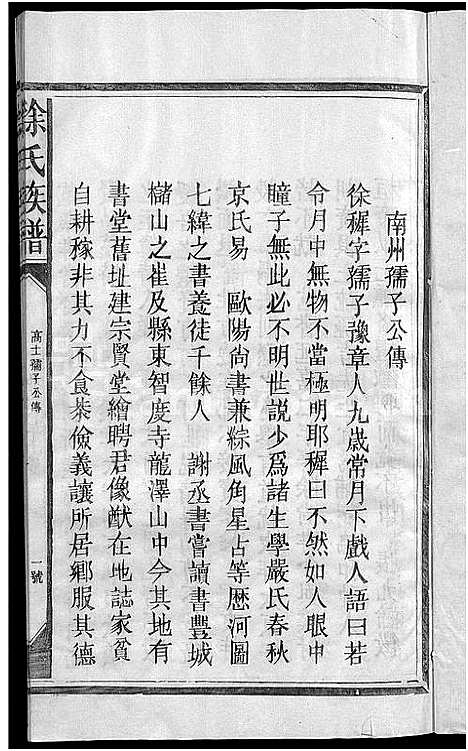 南州孺子公傳
徐穉字孺子豫章人九歲常月下戲人語曰若
令月中無物不當極明耶穉曰不然如人眼中
瞳子無此必不明世説少爲諸生學嚴氏春秋
京氏易 歐陽尚書兼綜風角星占等歷河圖
七緯之書養徒千餘人 謝丞書嘗讀書豐城
櫧山之崔及縣東智度寺龍澤山中今其地有
書堂舊址建宗賢堂繪聘君像猷在地誌家貧
自耕稼非其力不食恭儉義讓所居鄉服其德
徐氏族譜
高士孺子公傳
一號